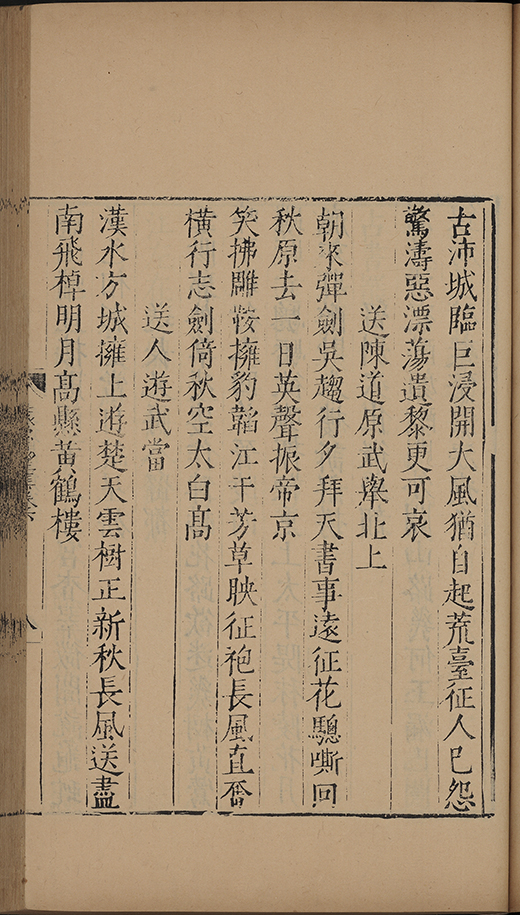 古沛城臨巨浸開大風猶自起荒臺征人已怨
驚濤惡漂蕩遺黎更可哀
送陳道原武舉北上
朝來彈劍吳趨行夕拜天書事遠征花驄嘶囘
秋原去一日英聲振帝京
笑拂雕鞍擁豹韜江干芳草映征袍長風直奮
橫行志劍倚秋空太白高
送人遊武當
漢水方城擁上遊楚天雲樹正新秋長風送盡
南飛棹明月高縣黃鶴樓
八